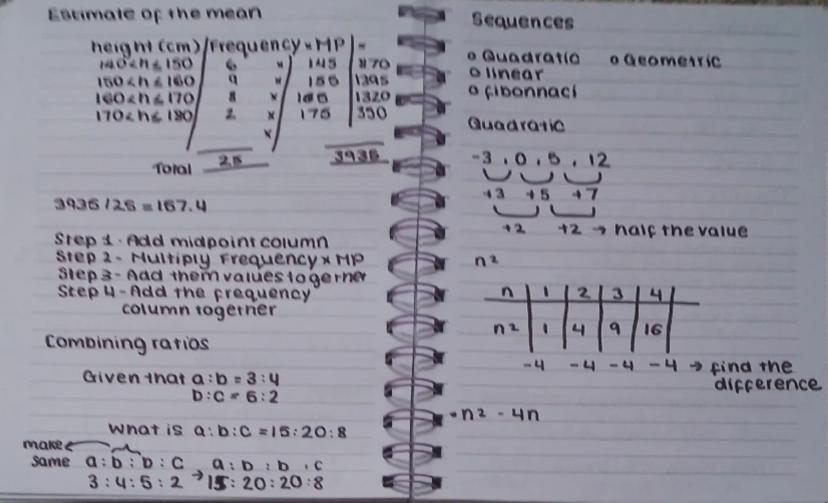 Estimate of the mean
height (cm) / Frequency × MP | =
140 < h ≤ 150 6 × 145 870
150 < h ≤ 160 9 × 155 1395
160 < h ≤ 170 8 × 165 1320
170 < h ≤ 180 2 × 175 350
×
Total 25 3935
3935 / 25 = 157.4
Step 1 - Add midpoint column
Step 2 - Multiply Frequency × MP
Step 3 - Add them values together
Step 4 - Add the frequency
column together
Combining ratios
Given that a:b = 3:4
b:c = 5:2
What is a:b:c = 15:20:8
make
same a : b : b : c → a : b : b : c
3 : 4 : 5 : 2 15 : 20 : 20 : 8
Sequences
o Quadratic o Geometric
o linear
o fibonnaci
Quadratic
-3, 0, 5, 12
+3 +5 +7
+2 +2 → half the value
n²
n | 1 | 2 | 3 | 4 |
n² | 1 | 4 | 9 | 16 |
-4 -4 -4 -4 → find the
difference
= n² - 4n